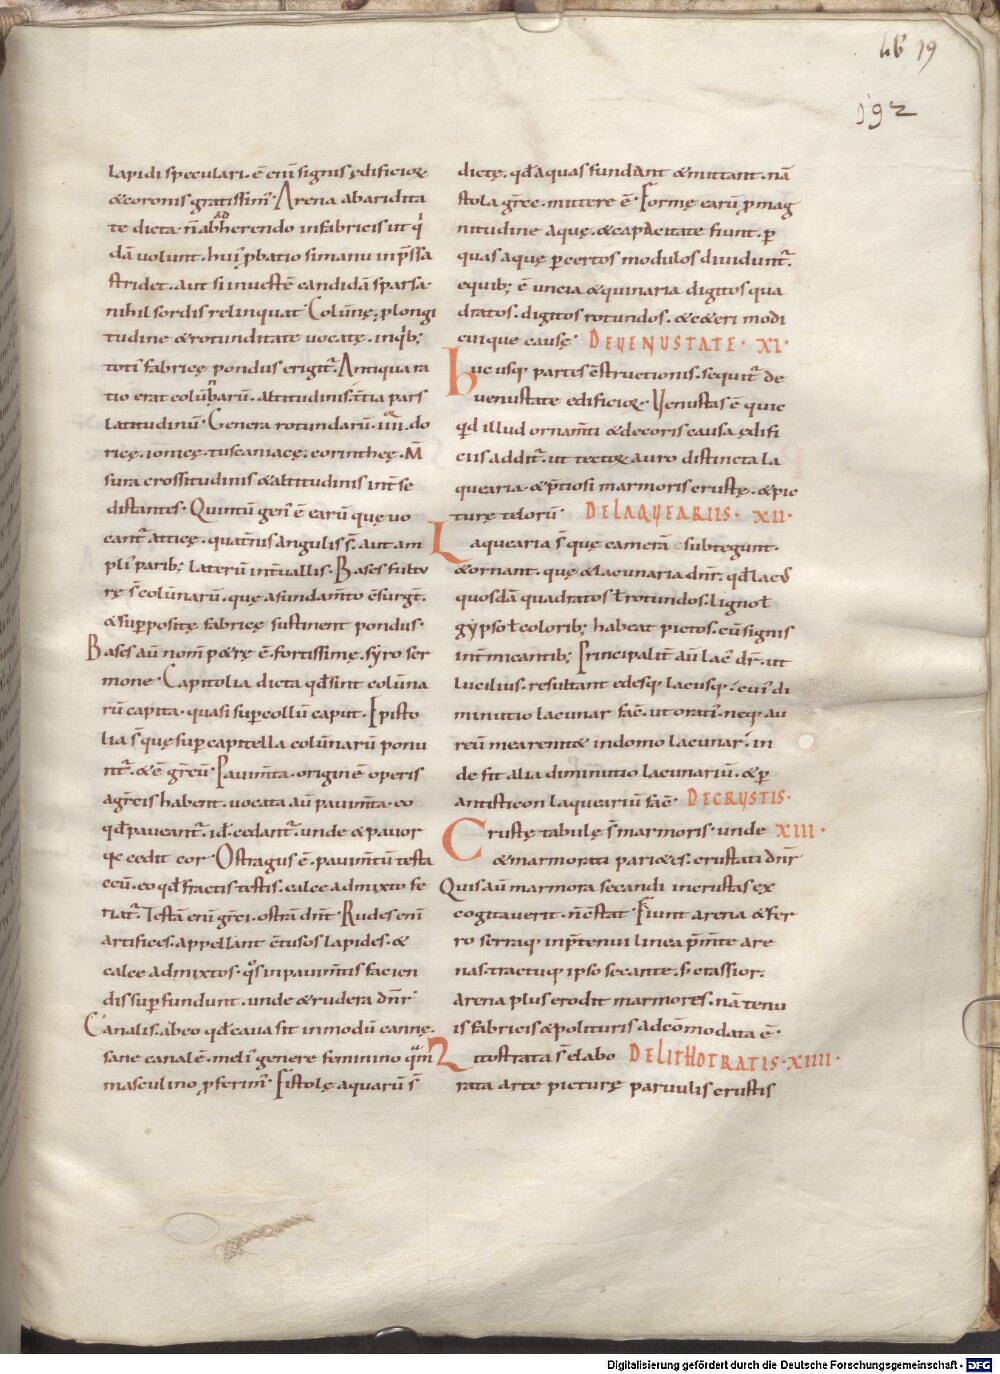 lib 19
192
lapidi speculari. ē eni signis ędificioꝝ
& coronis gratissim᾽. Arena ab aridita
te dicta. ñ ab AD herendo in fabricis ut q̇
dā volunt. hui᾽ ꝓbatio si manu inp̄ssa
stridet. aut si in veste candidā sparsa.
nihil sordis relinquat. Colūnę, ꝓ longi
tudine & rotunditate vocatę. in qb;
toti᾽ fabricę pondus erigit᷑. Antiqua ra
tio erat colūnarū. altitudinis. t̄tia pars
latitudinū. Genera rotundarū. IIII. do
ricę. ionicę. tuscanicę. corinthęę. M̄
sura crossitudinis & altitudinis int̄ se
distantes. Quintū gen᾽ ē earū quę vo
cant᷑ atticę. quat̄nis angulis s̄. aut am
pli᾽ parib; laterū int̄vallis. Bases fultu
rę s̄ colūnarū. quę a fundam̄to c̄surgt̄.
& suppositę fabricę sustinent pondus.
Bases aū nom̄ p&rę ē. fortissimę. syro ser
mone. Capitolia dicta qđ sint colūna
rū capita. quasi sup collū caput. Episto
lia s̄ quę sup capitella colūnarū ponu
nt᷑. & ē gr̄cū. Pavim̄ta. origin ē operis
a gr̄cis habent. vocata aū pavim̄ta. eo
qđ paveant᷑. id. cedant᷑. unde & pavor
qꝫ cedit cor. Ostragus ē. pavim̄tū testa
ceū. eo qđ fractis testis. calce admixto fe
riat᷑. Testā eni gr̄ci. ostrā dn̄t. Rudes eni
artifices. appellant c̄tusos lapides. &
calce admixtos. q̊s in pavim̄tis facien
dis sup fundunt. unde & rudera dn̄r.
Canalis. ab eo qđ cava sit in modū cannę.
sane canalē. meli᾽ genere feminino qm̄
masculino ꝓferim᾽. Fistolę aquarū s̄
dictę. qđ aquas fundant & mittant. nā
stola gr̄ce. mittere ē. Formę earū ꝓ mag
nitudine aquę. & capacitate fiunt. ꝑ
quas aquę ꝑ certos modulos dividunt᷑.
e quib; ē uncia & quinaria digitos qua
dratos. digitos rotundos. & c&eri modi
cuique causę. DE VENUSTATE. XI.
Huc usqꝫ partes c̄structionis. sequit᷑ de
venustate edificioꝝ. Venustas ē quic
qđ illud ornam̄ti & decoris causa ędifi
ciis addit᷑. ut tectoꝝ auro distincta la
quearia. & p̄tiosi marmoris crustę. & pic
turę colorū. DE LAQUEARIIS. XII.
Laquearia s̄ quę camerā subtegunt.
& ornant. quę & lacunaria dn̄r. qđ lacus
quosdā quadratos ł rotundos. ligno ł
gypso ł colorib; habeat pictos. cū signis
int̄micantib; Principalit̄ aū lac᾽ dr̄. ut
lucilius. resultant edesqꝫ lacusqꝫ: cui᾽ di
minutio lacunar fac̄. ut orati᾽. neqꝫ au
reū mea renit& in domo lacunar. in
de fit alia diminutio lacunariū. & ꝑ
antisticon laqueariū fac̄. DE CRUSTIS.
Crustę tabulę s̄ marmoris. unde XIII.
& marmorati pari&es. crustati dn̄r
Quis aū marmora secandi in crustas ex
cogitaverit. ñ c̄stat. Fiunt arena & fer
ro serraqꝫ in p̄tenui linea p̄m̄te are
nas. tractuqꝫ ipso secante. s; crassior.
arena plus erodit marmores. nā tenu
is fabricis & polituris adcōmodata ē.
Litostrata s̄ elabo DE LITHOTRATIS. XIIII.
rata arte picturę parvulis crustis
Digitalisierung gefördert durch die Deutsche Forschungsgemeinschaft - DFG